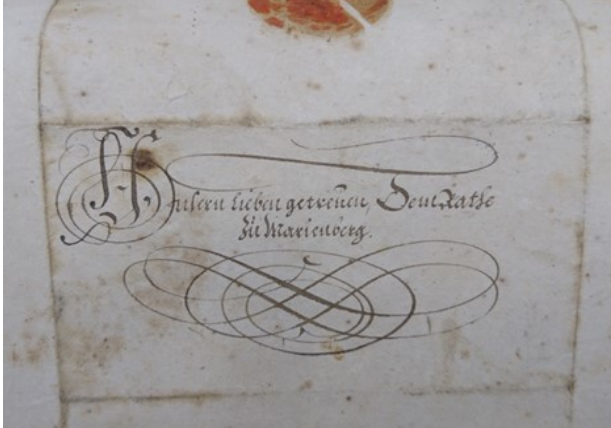 Unsern lieben getreuen, Dem Rathe
Zu Marienberg.